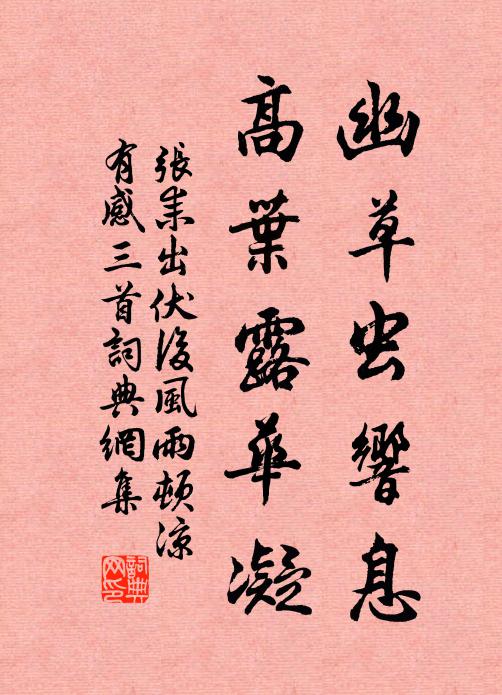 幽草虫響息
高葉露華凝
張耒出伏後風雨頓涼
有感三首詞典網集
詞典
网印